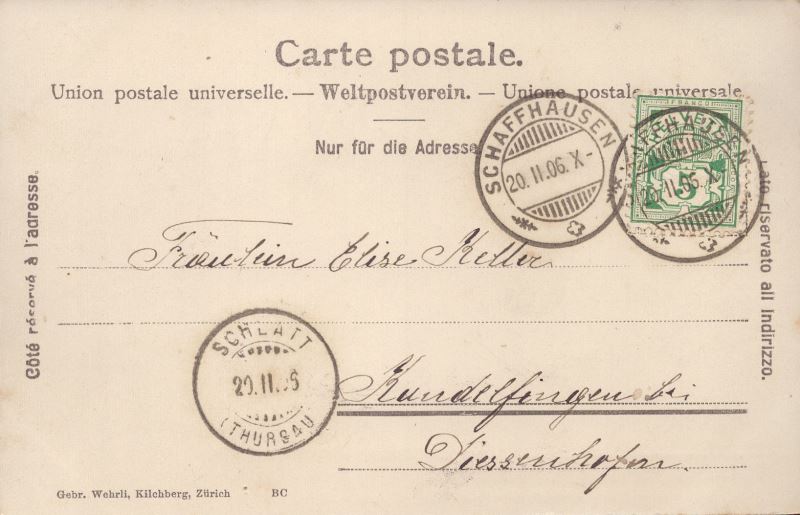 Carte postale.
Union postale universelle. — Weltpostverein. — Unione postale universale
Nur für die Adresse
SCHAFFHAUSEN
20.II.06.X-
FRANCO
5
20.II.06.X-
Côté réservé à l'adresse.
Lato riservato all Indirizzo.
Fräulein Elise Keller
SCHLATT
20.II.06
(THURGAU
Kundelfingen bei
Diessenhofen.
Gebr. Wehrli, Kilchberg, Zürich BC